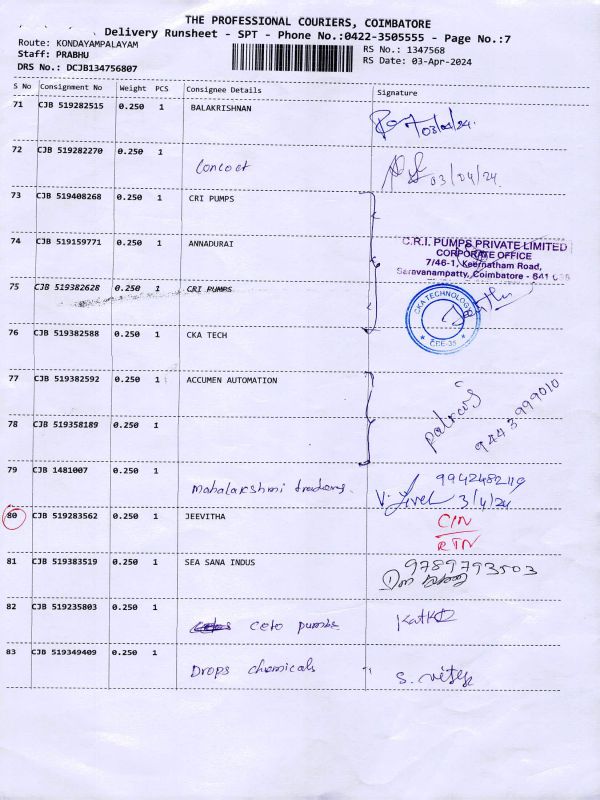 THE PROFESSIONAL COURIERS, COIMBATORE
Delivery Runsheet - SPT - Phone No.:0422-3505555 - Page No.:7
Route: KONDAYAMPALAYAM
Staff: PRABHU
DRS No.: DCJB134756807
RS No.: 1347568
RS Date: 03-Apr-2024
S No Consignment No Weight PCS Consignee Details Signature
71 CJB 519282515 0.250 1 BALAKRISHNAN 03/04/24.
72 CJB 519282270 0.250 1 03/04/24.
73 CJB 519408268 0.250 1 CRI PUMPS
74 CJB 519159771 0.250 1 ANNADURAI
C.R.I. PUMPS PRIVATE LIMITED
CORPORATE OFFICE
7/46-1, Keernatham Road,
Saravanampatty, Coimbatore - 641 035
75 CJB 519382628 0.250 1 CRI PUMPS
CKA TECHNOLOGY
CBE-35
76 CJB 519382588 0.250 1 CKA TECH
77 CJB 519382592 0.250 1 ACCUMEN AUTOMATION
9443999010
78 CJB 519358189 0.250 1
79 CJB 1481007 0.250 1 Mahalakshmi traders. 9942482119
3/4/24
80 CJB 519283562 0.250 1 JEEVITHA C/N
RTN
81 CJB 519383519 0.250 1 SEA SANA INDUS 9789793503
82 CJB 519235803 0.250 1 ceto pumbs
83 CJB 519349409 0.250 1 Drops chemicals